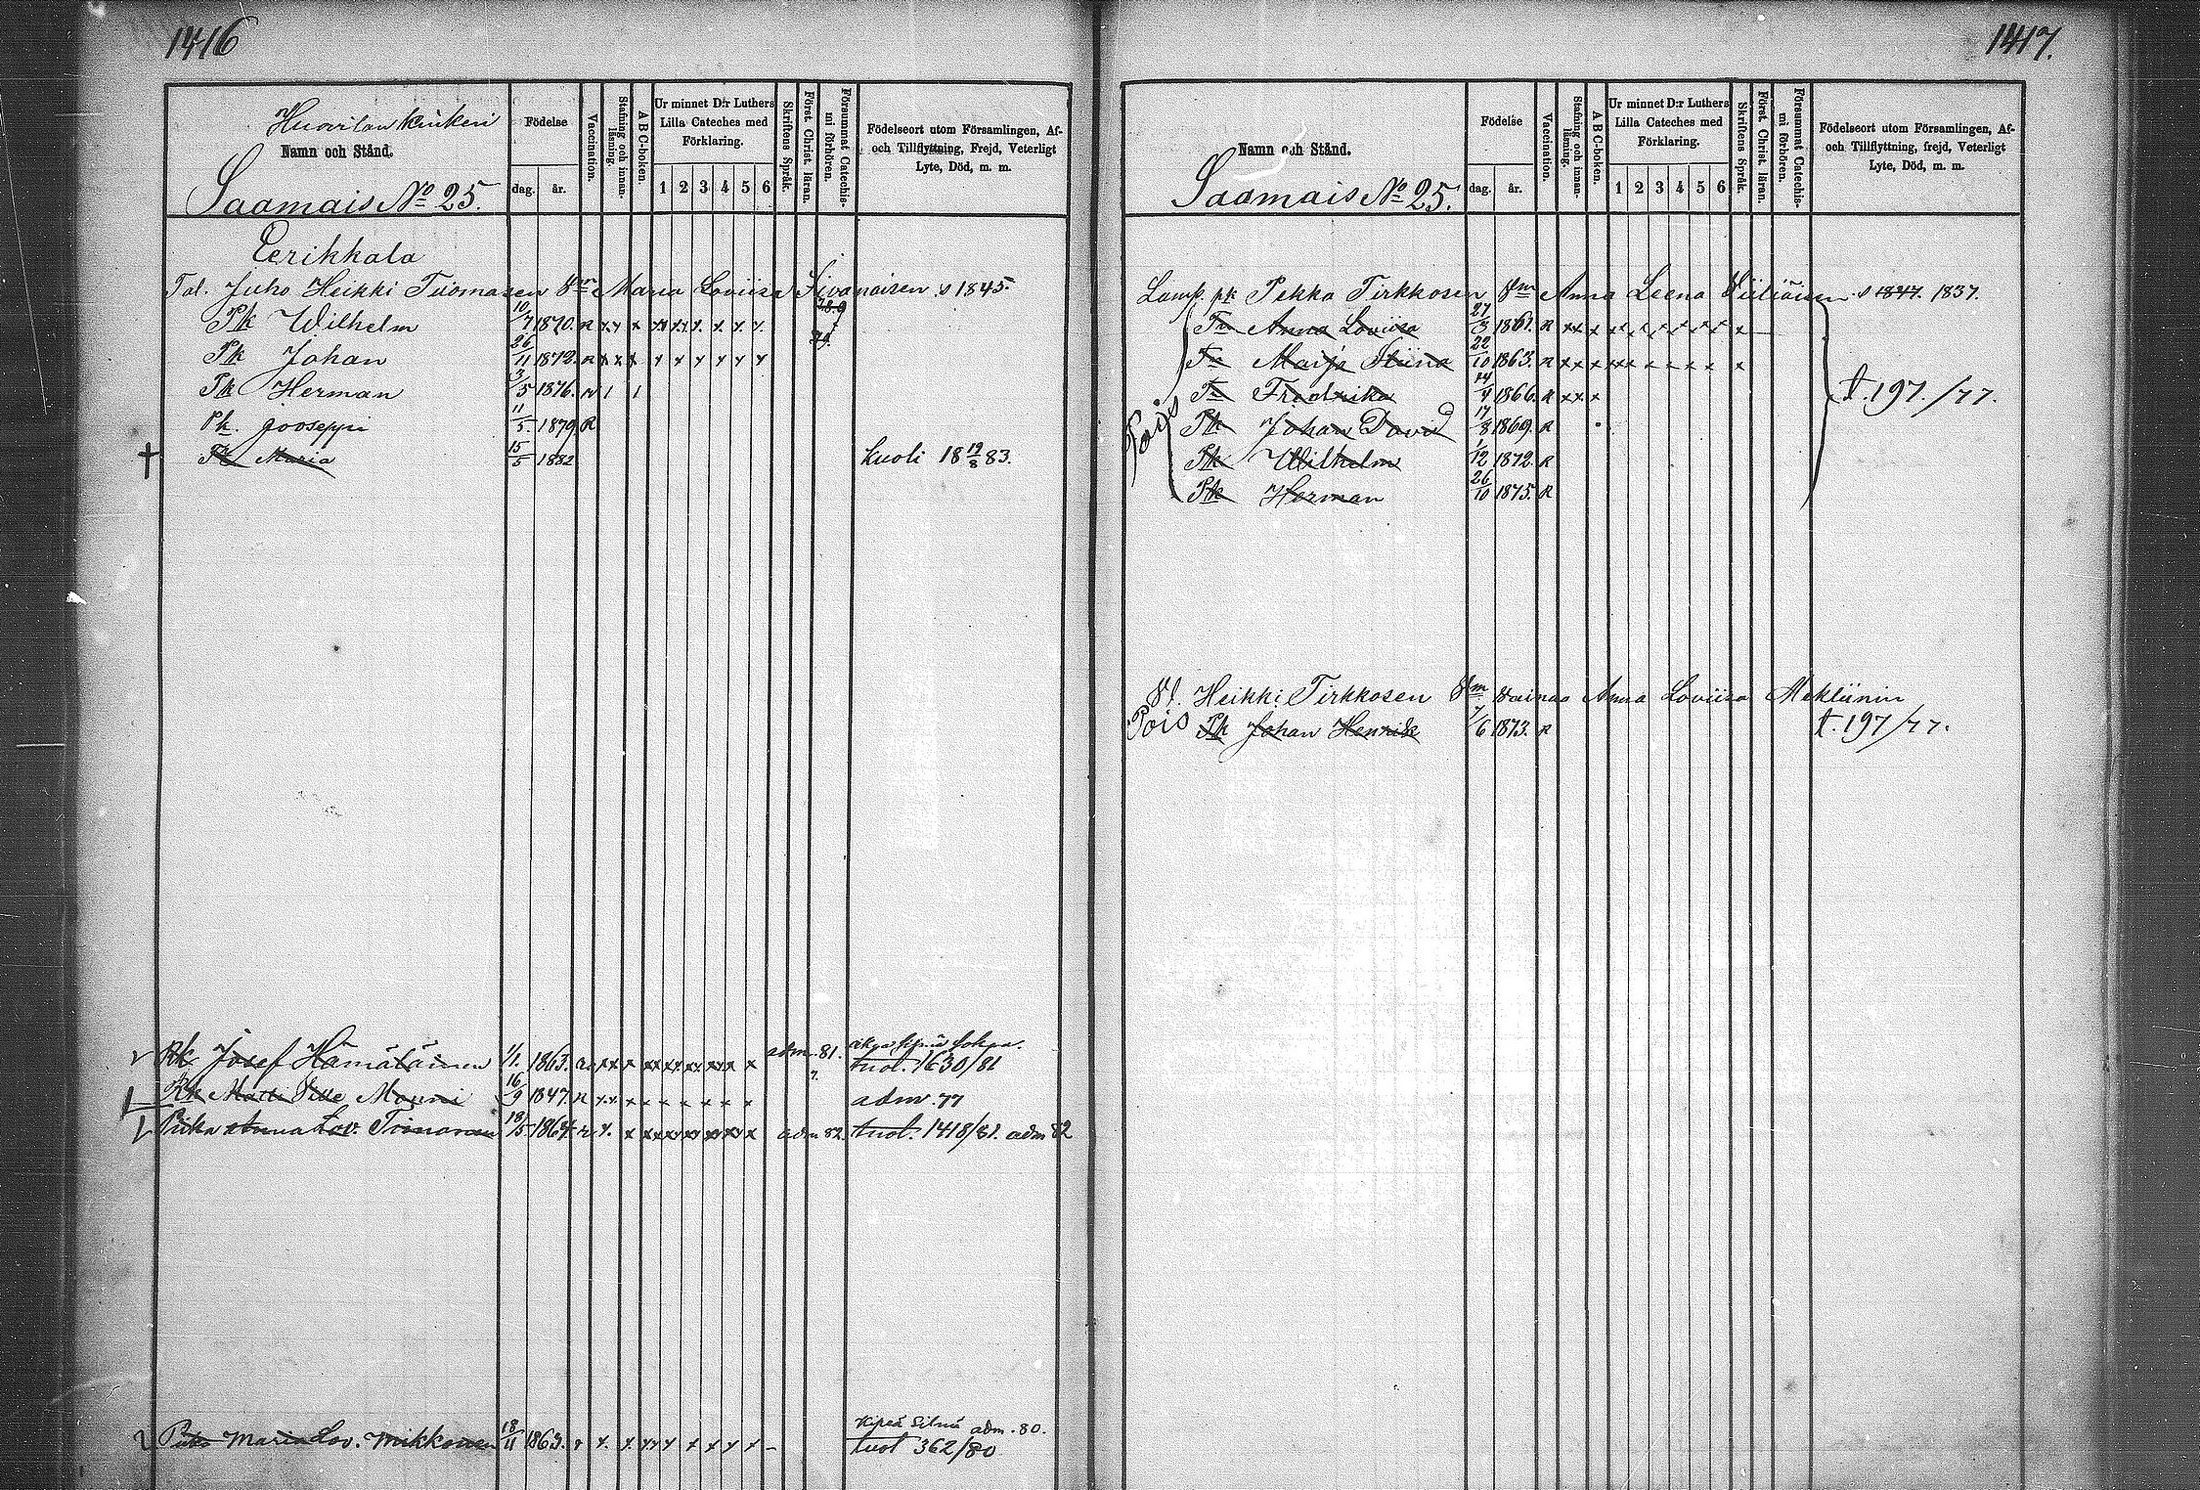 1416
Namn och Stånd.
Saamais No 25.
Födelse
dag. år.
Vaccination.
Stafning och innan-läsning.
ABC-boken.
Ur minnet D:r Luthers
Lilla Cateches med
Förklaring.
1 2 3 4 5 6
Skriftens Språk.
Först. Christ. läran.
Försummat Catechis-mi förhören.
Födelseort utom Församlingen, Af-
och Tillflyttning, Frejd, Veterligt
Lyte, Död, m. m.
Eerikkala
Tal. Juho Heikki Tuomasen Vm Maria Loviisa Sivonoisen s 1845.
Pk Wilhelm 10/7 1870. R
Pk Johan 26/11 1872. R
Pk Herman 3/5 1876. R
Pk. Jooseppi 11/5 1879 R
Tr Maria 15/5 1882 kuoli 18 19/8 83.
Rk Josef Hämäläinen 1/1 1863. adm. 81. tuot. 1630/81
Rk Matti Ville Monni 16/9 1847. R adm. 77
Piika Anna Lov. Timonen 18/5 1864 adm 82 tuot. 1418/81. adm 82
Piika Maria Lov. Mikkonen 18/11 1863. Kipeä Silmä adm. 80.
tuot 362/80
1417.
Namn och Stånd.
Saamais No 25.
Födelse
dag. år.
Vaccination.
Stafning och innan-läsning.
ABC-boken.
Ur minnet D:r Luthers
Lilla Cateches med
Förklaring.
1 2 3 4 5 6
Skriftens Språk.
Först. Christ. läran.
Försummat Catechis-mi förhören.
Födelseort utom Församlingen, Af-
och Tillflyttning, frejd, Veterligt
Lyte, Död, m. m.
Lamp. pk Pekka Tirkkosen Vm Anna Leena s 1847. 1837.
Tr Anna Loviisa 27/3 1861. R
Tr Maija Stiina 22/10 1863. R
Tr Fredrika 14/4 1866. R
Pk Johan David 17/8 1869. R
Pk Wilhelm 1/12 1872. R
Pk Herman 26/10 1875. R
Pois
t. 197./77.
Heikki Tirkkosen Vm vainaa Anna Loviisa Mekliinin
Pois Pk Johan Henrik 7/6 1873. R t. 197/77.